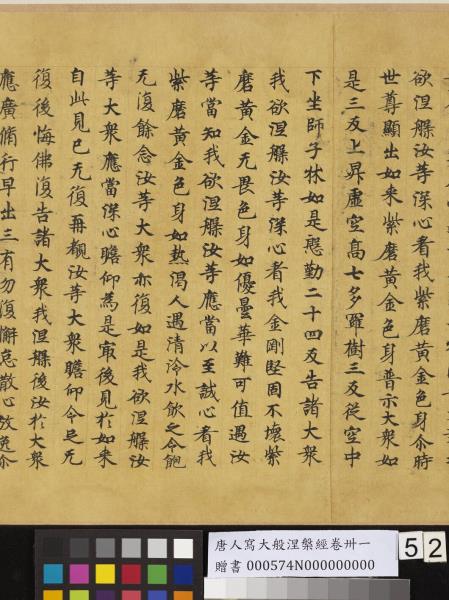 欲涅槃汝等深心看我紫磨黄金色身尒時
世尊顯出如来紫磨黄金色身普示大衆如
是三反上昇虛空高七多羅樹三反従空中
下坐師子牀如是慇勤二十四反告諸大衆
我欲涅槃汝等深心看我金剛堅固不壞紫
磨黄金无畏色身如優曇華難可值遇汝
等當知我欲涅槃汝等應當以至誠心看我
紫磨黄金色身如熱渴人遇清冷水飲之令飽
无復餘念汝等大衆亦復如是我欲涅槃汝
等大衆應當深心瞻仰為是㝡後見於如来
自此見已无復再覩汝等大衆瞻仰令足无
復後悔佛復告諸大衆我涅槃後汝於大衆
應廣脩行早出三有勿復懈怠散心放逸尒
唐人寫大般涅槃經卷卅一
贈書 000574N000000000
52